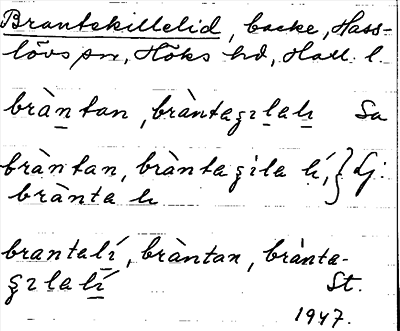 Brantskillelid, backe, Hass-
lövs sn, Höks hd, Hall. l.
bràn̲tan, bràntagıl̲ah̲ı Sa
bràntan, bràntagıla lí, } Lj:
brànta h
brantalí, bràntan, brànta-
gıl̲al̲í St.
1947.